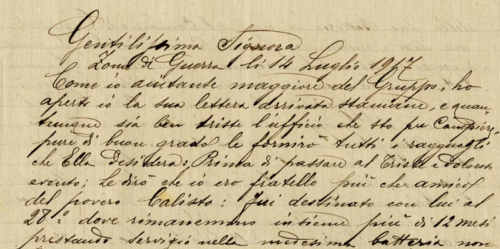 Gentilissima Signora
Zona di Guerra li 14 Luglio 1917
Come io aiutante maggiore del Gruppo, ho
aperto io la sua lettera arrivata stamane, e quan
tunque sia ben triste l'ufficio che sto per compier
pure di buon grado le fornirò tutti i ragguagli
che Ella desidera: Prima di passare al triste e dolente
evento; Le dirò che io ero fratello più che amico
del povero Calisto: fui destinato con lui al
28° dove rimanemmo insieme più di 12 mesi
prestando servizio nella medesima batteria non